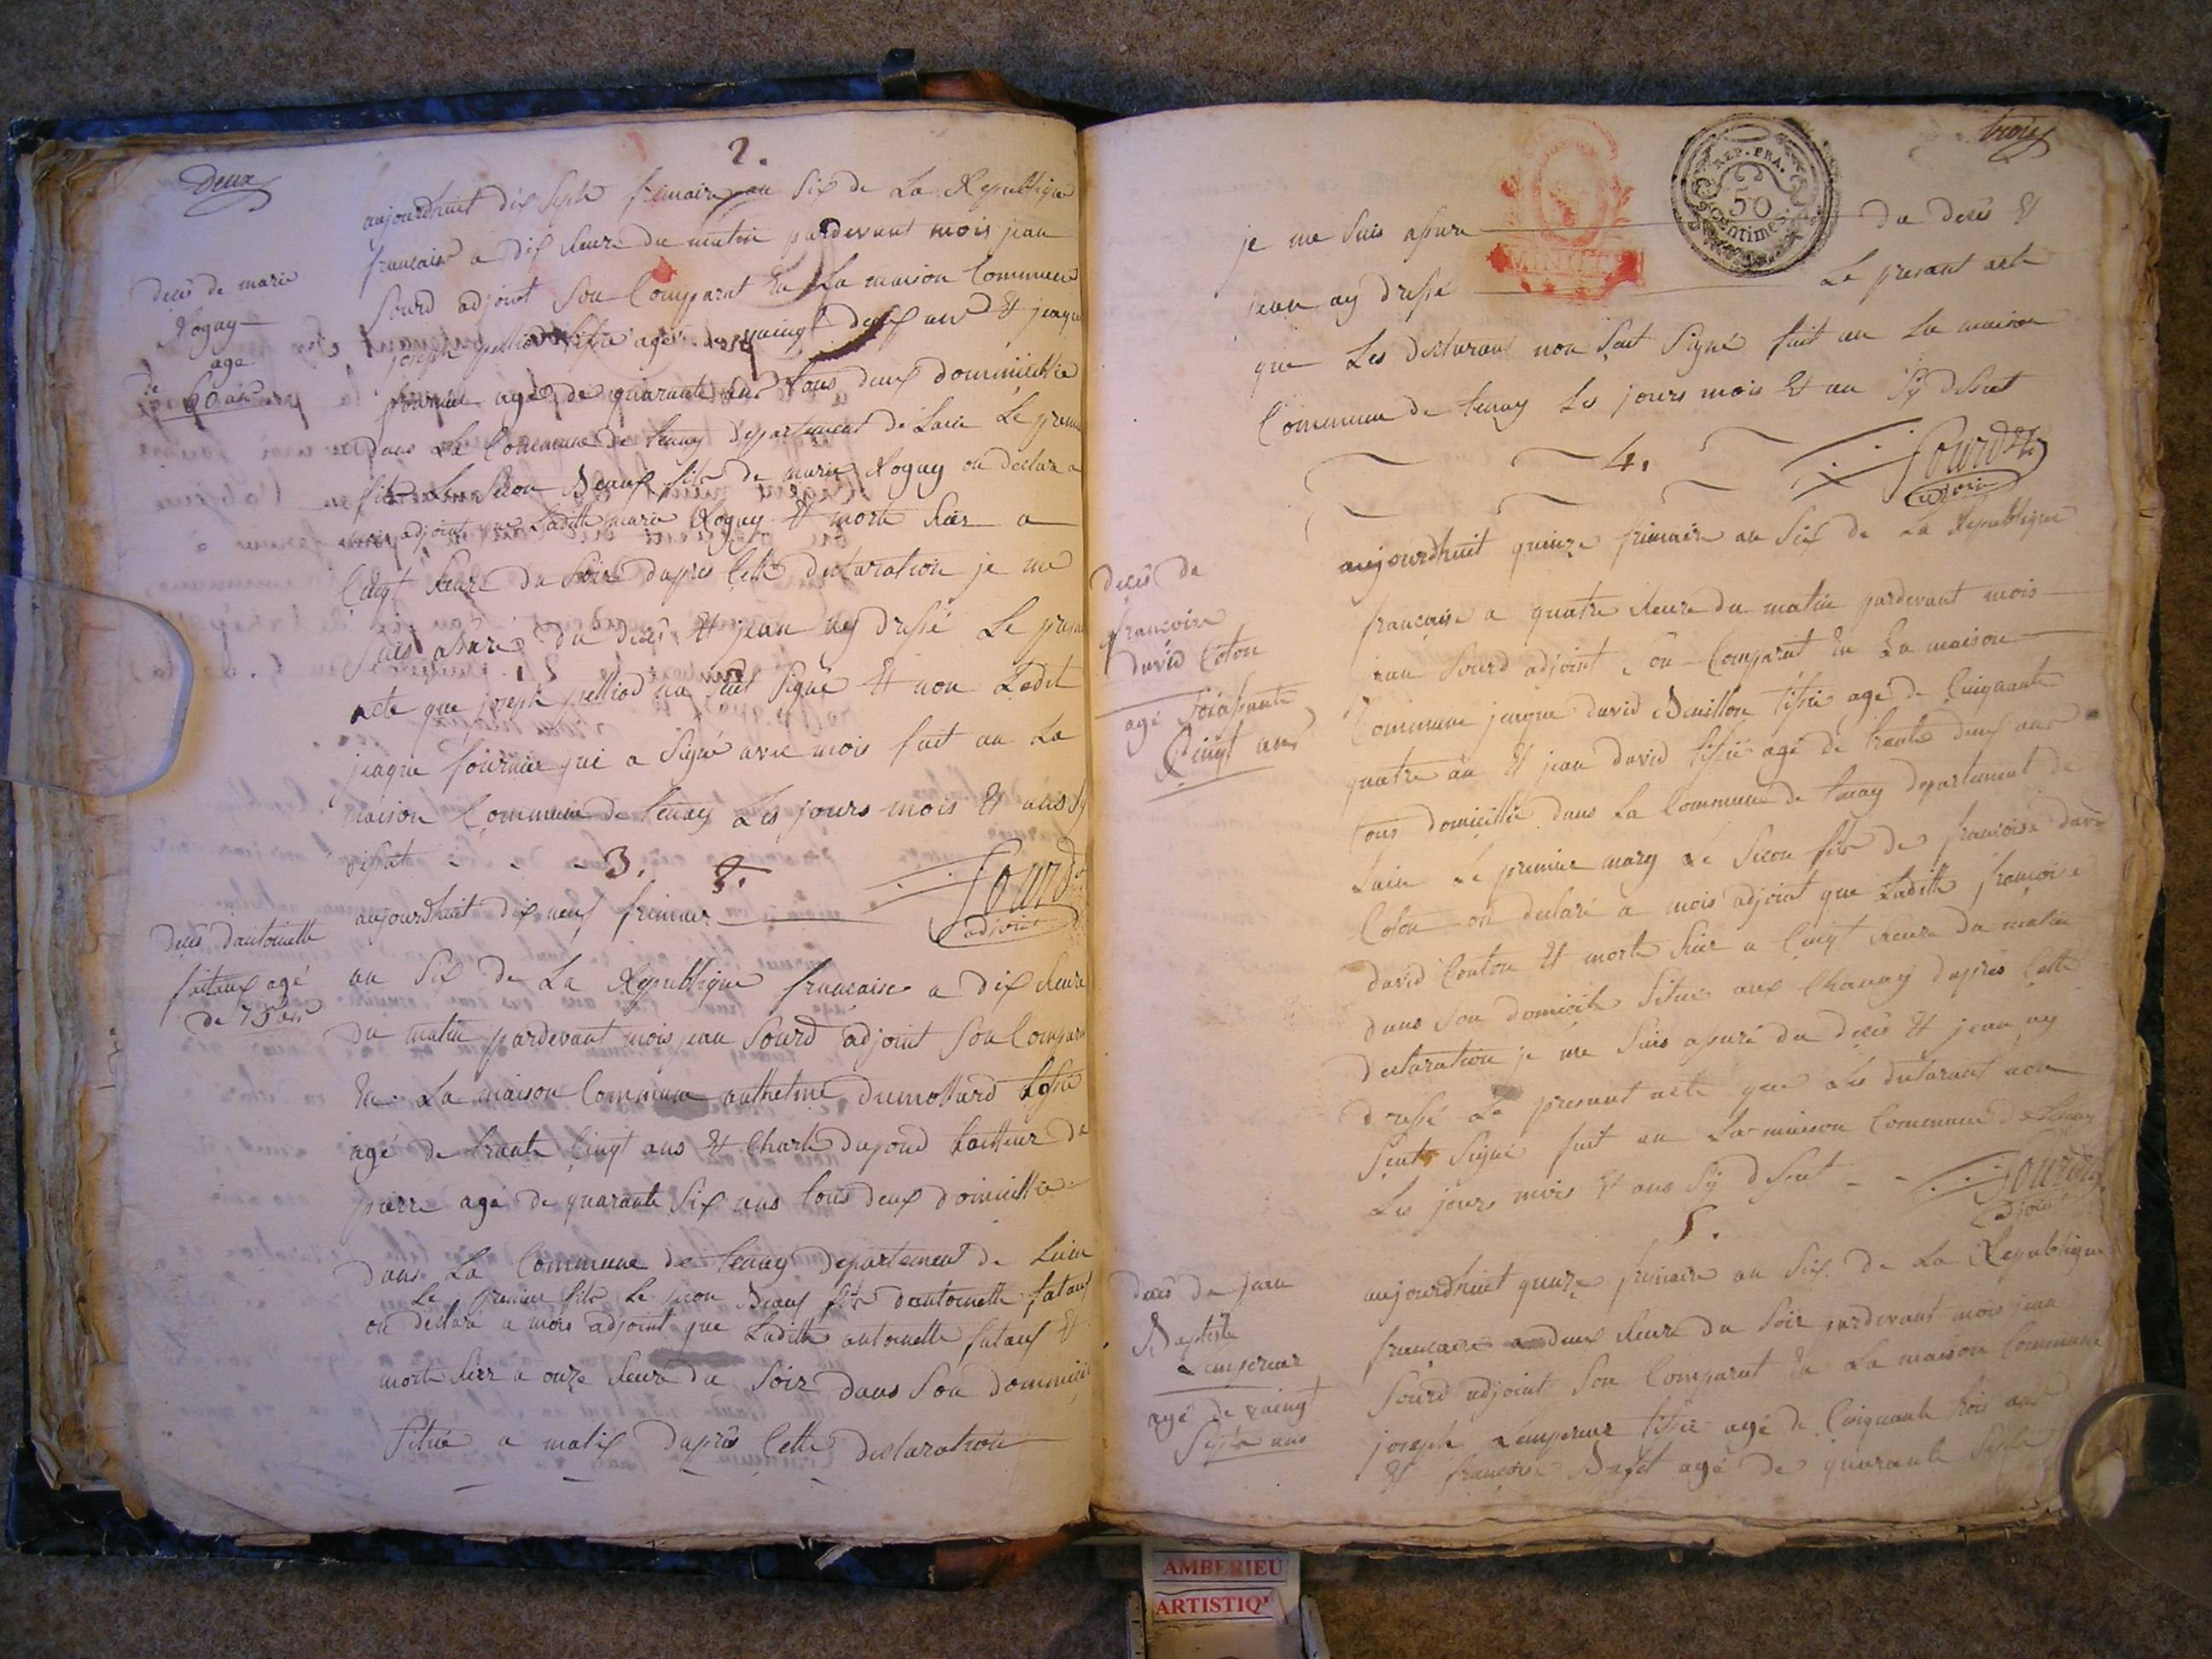 deux
2.
aujourdhuit dix septe frimaire an six de La Republique
francaise a dix heure du matin pardevant mois jean
Sourd adjoint son Comparut En La maison Commune
joseph pelliod tissie agé de vaingt deux ans Et jaque
fournier agé de quarante ans tous deux domicilie
dans La Commune de tenay departement de Lain Le premie
fils Le secon Beaux fils de marie Rogay on declare a
mois adjoint que Laditte marie Rogay Et morte hier a
Cinqt heure du soir dapres Cette declaration je me
suis assure du deces Et jean ay dressé Le presant
acte que joseph pelliod na seut signe Et non Ledit
jeaque fournier qui a signé avec mois fait an La
maison Commune de tenay Les jours mois Et ans sy
desut
Sourd
adjoint
deces de marie
Rogay
age
de
60 ans
3.
aujourdhuit dix neuf frimaire
an six de La Republique francaise a dix heure
du matin pardevant mois jean Sourd adjoint son Compar
En La maison Commune anthelme dumollard tissie
agé de trante Cinqt ans Et Charle dupond tailleur de
pierre agé de quarante six ans tous deux domicillie
dans La Commune de tenay departement de Lain
Le premier fils Le secon Beaux fils dantoinette fataux
on declare a mois adjoint que Laditte antoinette fataux Et
morte hier a onze heure du soir dans son domicile
situé a malix dapres Cette declaration
deces dantoinette
fataux agé
de 75 ans
trois
REP. FRA.
50
centimes
je me suis assure du deces Et
jean ay dressé Le presant acte
que Les declarant non seut signé fait an La maison
Commune de tenay Les jours mois Et an sy desut
Sourd
adjoint
4.
aujourdhuit quinze frimaire an six de La Republique
francaise a quatre heure du matin pardevant mois
jean Sourd adjoint son Comparut En La maison
Commune jeaque david Bouillon tissie agé de Cinquante
quatre an Et jean david tissie agé de trante deux ans
tous domicillie dans La Commune de tenay departement de
Lain Le premier mary Le secon fils de francoise david
Coton on declaré a mois adjoint que Laditte francoise
david Couton Et morte hier a Cinqt heure du matin
dans son domicile situe aux Chanay dapres Cette
declaration je me suis assuré du deces Et jean ay
dressé Le presant acte que Les declarant non
seut signé fait an La maison Commune de tenay
Les jours mois Et ans sy desut
Sourd
adjoint
deces de
francoise
david Coton
agé soixante
Cinqt ans
5.
aujourdhuit quinze frimaire an six de La Republique
francaise a deux heure du soir pardevant mois jean
Sourd adjoint son Comparut En La maison Commune
joseph Lempereur tissie agé de Cinquante trois ans
Et francois agé de quarante septe
deces de jean
Baptiste
Lempereur
agé de vaingt
septe ans
AMBERIEU
ARTISTIQ'